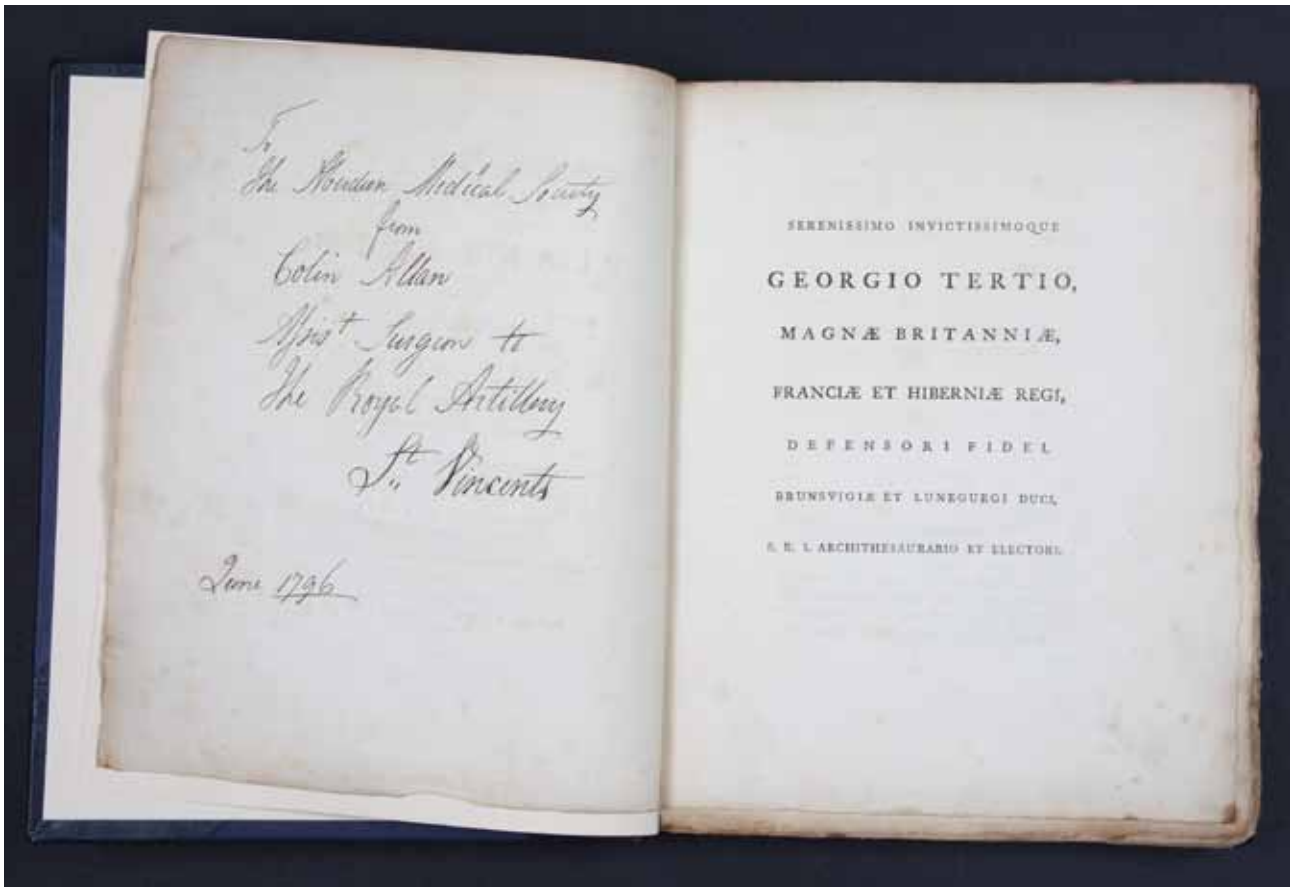 To
The Aberdeen Medical Society
from
Colin Allan
Assist Surgeon to
The Royal Artillery
St Vincents
June 1796
SERENISSIMO INVICTISSIMOQUE
GEORGIO TERTIO,
MAGNÆ BRITANNIÆ,
FRANCIÆ ET HIBERNIÆ REGI,
DEFENSORI FIDEI,
BRUNSVIGIÆ ET LUNEBURGI DUCI,
S. R. I. ARCHITHESAURARIO ET ELECTORI.